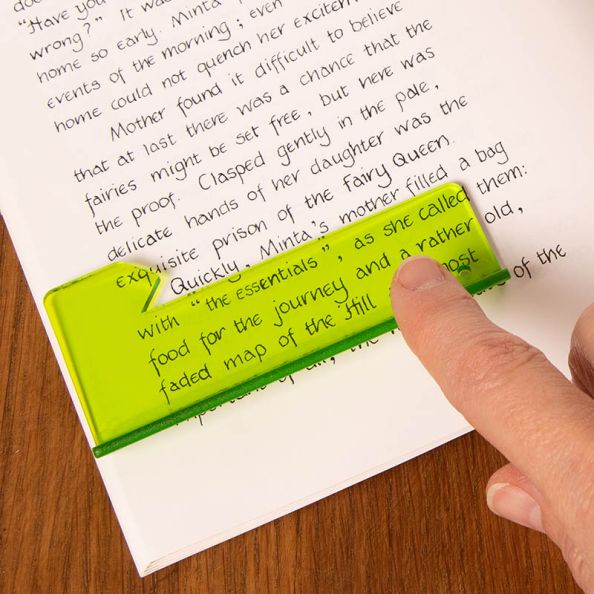 "Have you
wrong?" It was
home so early. Minta
events of the morning; even
home could not quench her excitem
Mother found it difficult to believe
that at last there was a chance that the
fairies might be set free, but here was
the proof. Clasped gently in the pale,
delicate hands of her daughter was the
exquisite prison of the Fairy Queen.
Quickly, Minta's mother filled a bag
with "the essentials", as she called them:
food for the journey and a rather old,
faded map of the Hill most
of the